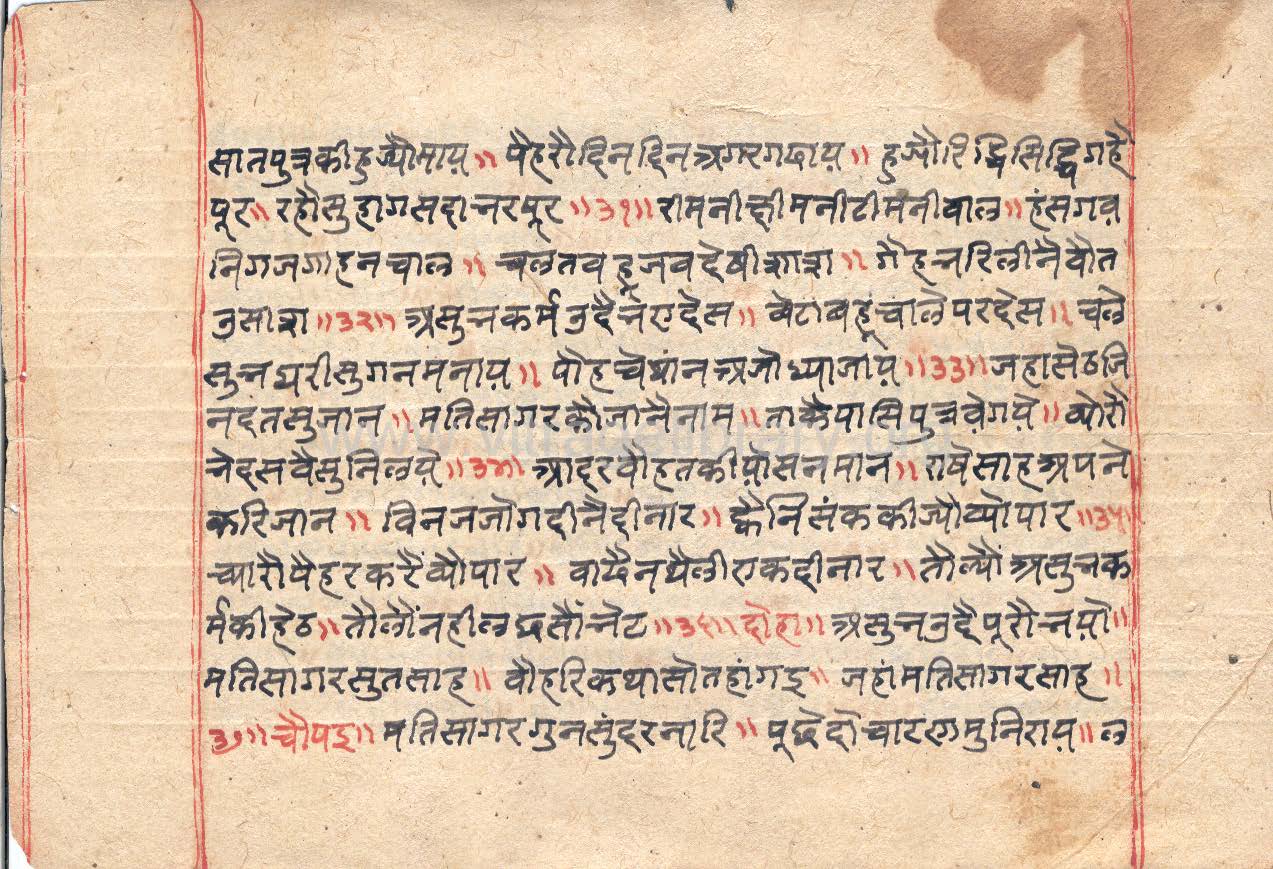 सातपुत्रकीहुज्यौमाय़॥ पैहरौदिनदिनअगरगछाय़॥ हुज्यौरिद्धिसिद्धिगहै
पूर॥ रहौसुहागसदाभरपूर॥३१॥रीमतीछीमतीटीमतीवाल॥हंसगव़
निगजगाहनचाल॥ चलतवहूजवदेषीसास॥ गैहभरिलीनैवौत
उसास॥३२॥ असुभकर्मउदैभएदेस॥ वेटावहूंचालेपरदेस॥ चले
सुभघरीसुगनमनाय़॥ पौहचेथांनअजोध्याजाय़॥३३॥जहासेठजि
नदतसुजान॥मतिसागरकौजानैनाम॥ताकैपासिपुत्रव़ेगय़े॥व्यौरौ
नेदसवैसुनिलय़े॥३४॥ आदरवौहतकीय़ोसनमान॥राषेसाहअपने
करिजान॥ विनजजोगदीनैदीनार॥ह्वैनिसंककीज्यौव्यौपार॥३५॥
च्यारौपैहरकरैंव्यौपार॥ वाछैनथैलीएकदीनार॥तौल्यौंअसुभक
र्मकीहेठ॥तौलौंनहीलछसौंभेट॥३६॥दोहा॥असुभउदैपूरौभय़ो॥
मतिसागरसुतसाह॥ वौहरिकथासोतहांगइ॥ जहांमतिसागरसाह॥
३७॥चौपइ॥मतिसागरगुनसुंदरनारि॥ पूछेदोचारणमुनिराय़॥ल